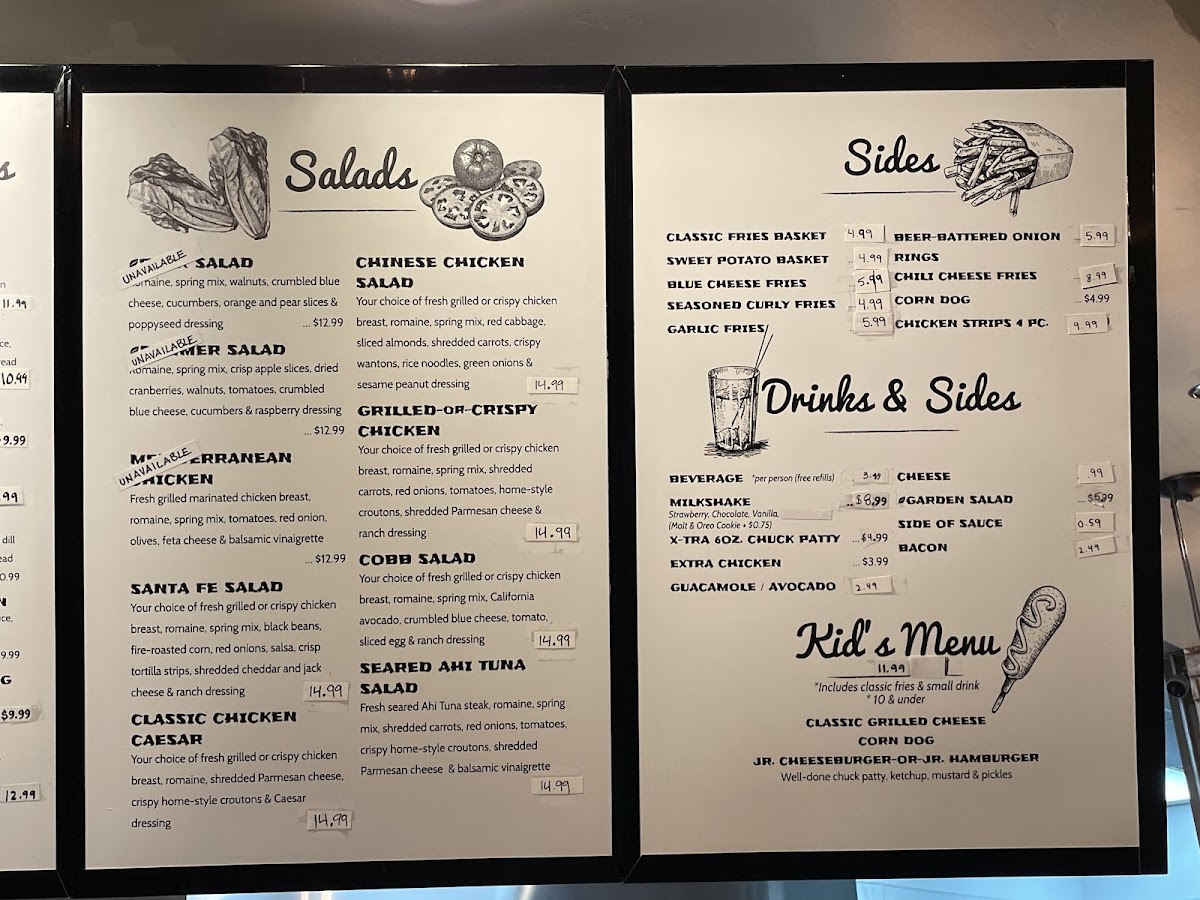 s
n
11.99
ce,
ead
10.99
9.99
.99
dill
ead
0.99
N
ce,
9.99
G
$9.99
12.99
Salads
UNAVAILABLE
SALAD
romaine, spring mix, walnuts, crumbled blue
cheese, cucumbers, orange and pear slices &
poppyseed dressing ... $12.99
UNAVAILABLE
MER SALAD
romaine, spring mix, crisp apple slices, dried
cranberries, walnuts, tomatoes, crumbled
blue cheese, cucumbers & raspberry dressing
... $12.99
UNAVAILABLE
MEDITERRANEAN
CHICKEN
Fresh grilled marinated chicken breast,
romaine, spring mix, tomatoes, red onion,
olives, feta cheese & balsamic vinaigrette
... $12.99
SANTA FE SALAD
Your choice of fresh grilled or crispy chicken
breast, romaine, spring mix, black beans,
fire-roasted corn, red onions, salsa, crisp
tortilla strips, shredded cheddar and jack
cheese & ranch dressing 14.99
CLASSIC CHICKEN
CAESAR
Your choice of fresh grilled or crispy chicken
breast, romaine, shredded Parmesan cheese,
crispy home-style croutons & Caesar
dressing 14.99
CHINESE CHICKEN
SALAD
Your choice of fresh grilled or crispy chicken
breast, romaine, spring mix, red cabbage,
sliced almonds, shredded carrots, crispy
wantons, rice noodles, green onions &
sesame peanut dressing 14.99
GRILLED-OR-CRISPY
CHICKEN
Your choice of fresh grilled or crispy chicken
breast, romaine, spring mix, shredded
carrots, red onions, tomatoes, home-style
croutons, shredded Parmesan cheese &
ranch dressing 14.99
COBB SALAD
Your choice of fresh grilled or crispy chicken
breast, romaine, spring mix, California
avocado, crumbled blue cheese, tomato,
sliced egg & ranch dressing 14.99
SEARED AHI TUNA
SALAD
Fresh seared Ahi Tuna steak, romaine, spring
mix, shredded carrots, red onions, tomatoes,
crispy home-style croutons, shredded
Parmesan cheese & balsamic vinaigrette
14.99
Sides
CLASSIC FRIES BASKET 4.99
SWEET POTATO BASKET ... 4.99
BLUE CHEESE FRIES 5.99
SEASONED CURLY FRIES ... 4.99
GARLIC FRIES 5.99
BEER-BATTERED ONION ... 5.99
RINGS
CHILI CHEESE FRIES 8.99
CORN DOG ... $4.99
CHICKEN STRIPS 4 PC. 9.99
Drinks & Sides
BEVERAGE *per person (free refills) 3.49
MILKSHAKE ... $8.99
Strawberry, Chocolate, Vanilla,
(Malt & Oreo Cookie + $0.75)
X-TRA 6OZ. CHUCK PATTY ... $4.99
EXTRA CHICKEN ... $3.99
GUACAMOLE / AVOCADO 2.49
CHEESE .99
#GARDEN SALAD ... $5.99
SIDE OF SAUCE 0.59
BACON 2.49
Kid's Menu
11.99
*Includes classic fries & small drink
* 10 & under
CLASSIC GRILLED CHEESE
CORN DOG
JR. CHEESEBURGER-OR-JR. HAMBURGER
Well-done chuck patty, ketchup, mustard & pickles